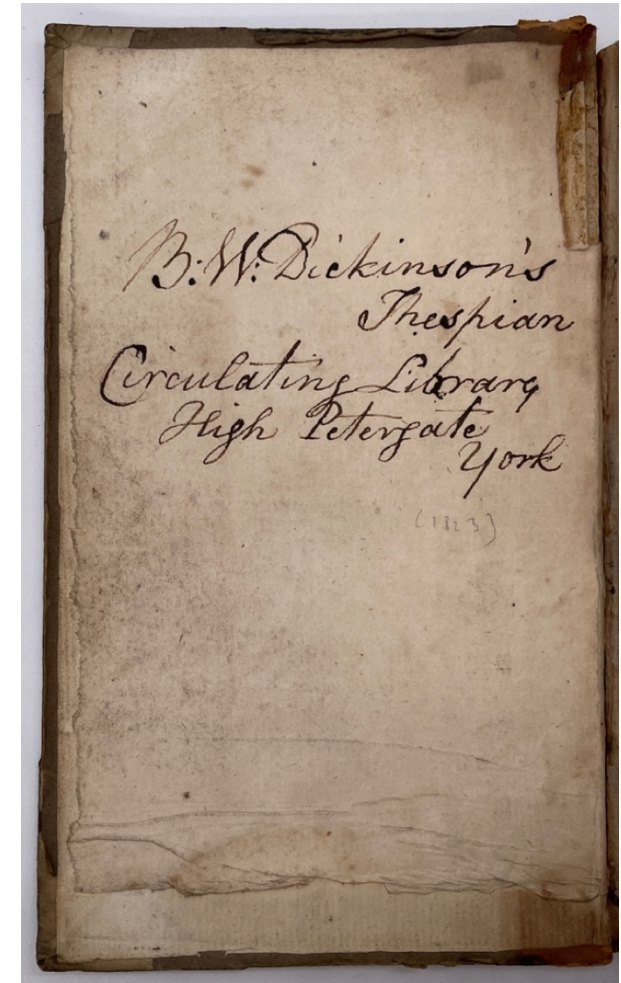 B: W: Dickinson's
Thespian
Circulating Library
High Petergate
York
(1823)